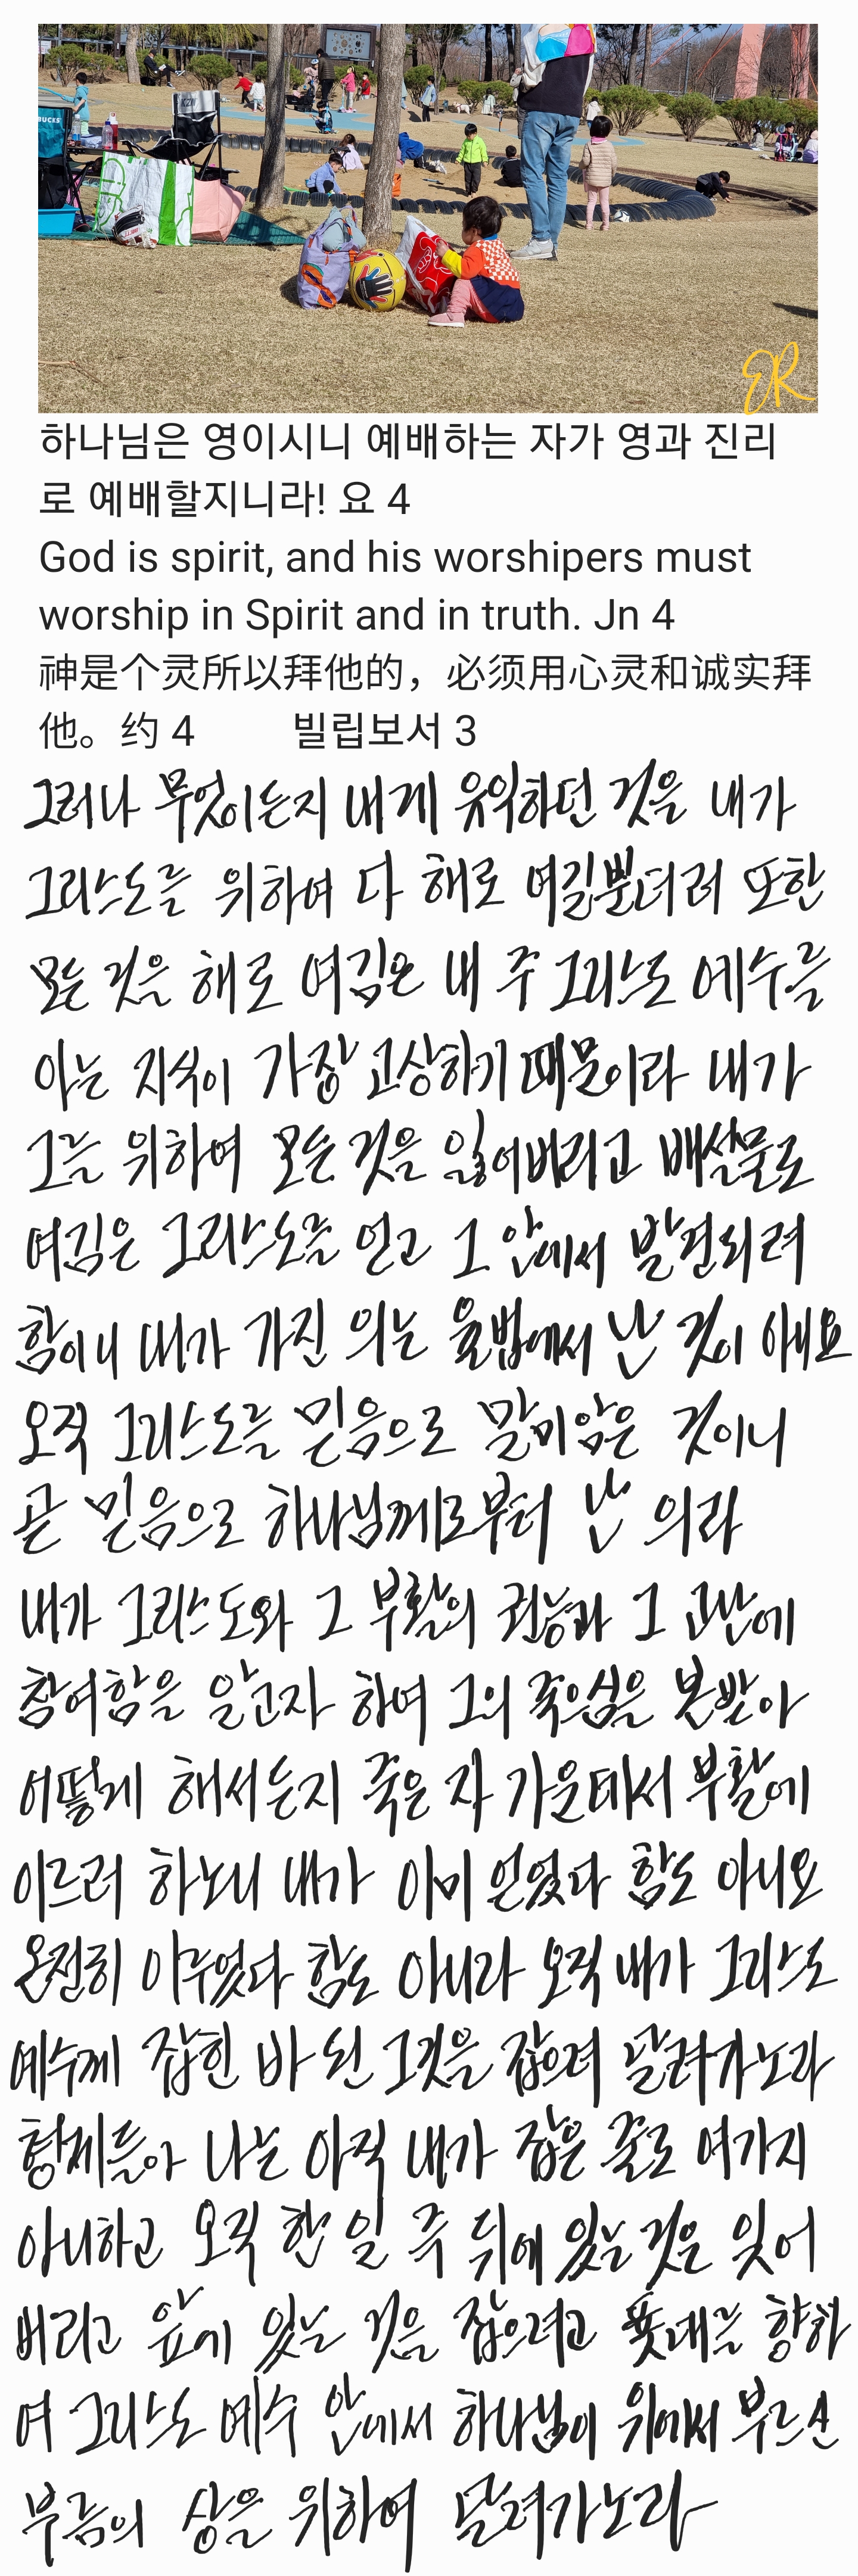 BUCKS
ER
하나님은 영이시니 예배하는 자가 영과 진리
로 예배할지니라! 요 4
God is spirit, and his worshipers must
worship in Spirit and in truth. Jn 4
神是个灵所以拜他的，必须用心灵和诚实拜
他。约 4 빌립보서 3
그러나 무엇이든지 내게 유익하던 것을 내가
그리스도를 위하여 다 해로 여길뿐더러 또한
모든 것을 해로 여김은 내 주 그리스도 예수를
아는 지식이 가장 고상하기 때문이라 내가
그를 위하여 모든 것을 잃어버리고 배설물로
여김은 그리스도를 얻고 그 안에서 발견되려
함이니 내가 가진 의는 율법에서 난 것이 아니요
오직 그리스도를 믿음으로 말미암은 것이니
곧 믿음으로 하나님께로부터 난 의라
내가 그리스도와 그 부활의 권능과 그 고난에
참여함을 알고자 하여 그의 죽으심을 본받아
어떻게 해서든지 죽은 자 가운데서 부활에
이르려 하노니 내가 이미 얻었다 함도 아니요
온전히 이루었다 함도 아니라 오직 내가 그리스도
예수께 잡힌 바 된 그것을 잡으려 달려가노라
형제들아 나는 아직 내가 잡은 줄로 여기지
아니하고 오직 한 일 즉 뒤에 있는 것은 잊어
버리고 앞에 있는 것을 잡으려고 푯대를 향하
여 그리스도 예수 안에서 하나님이 위에서 부르신
부름의 상을 위하여 달려가노라